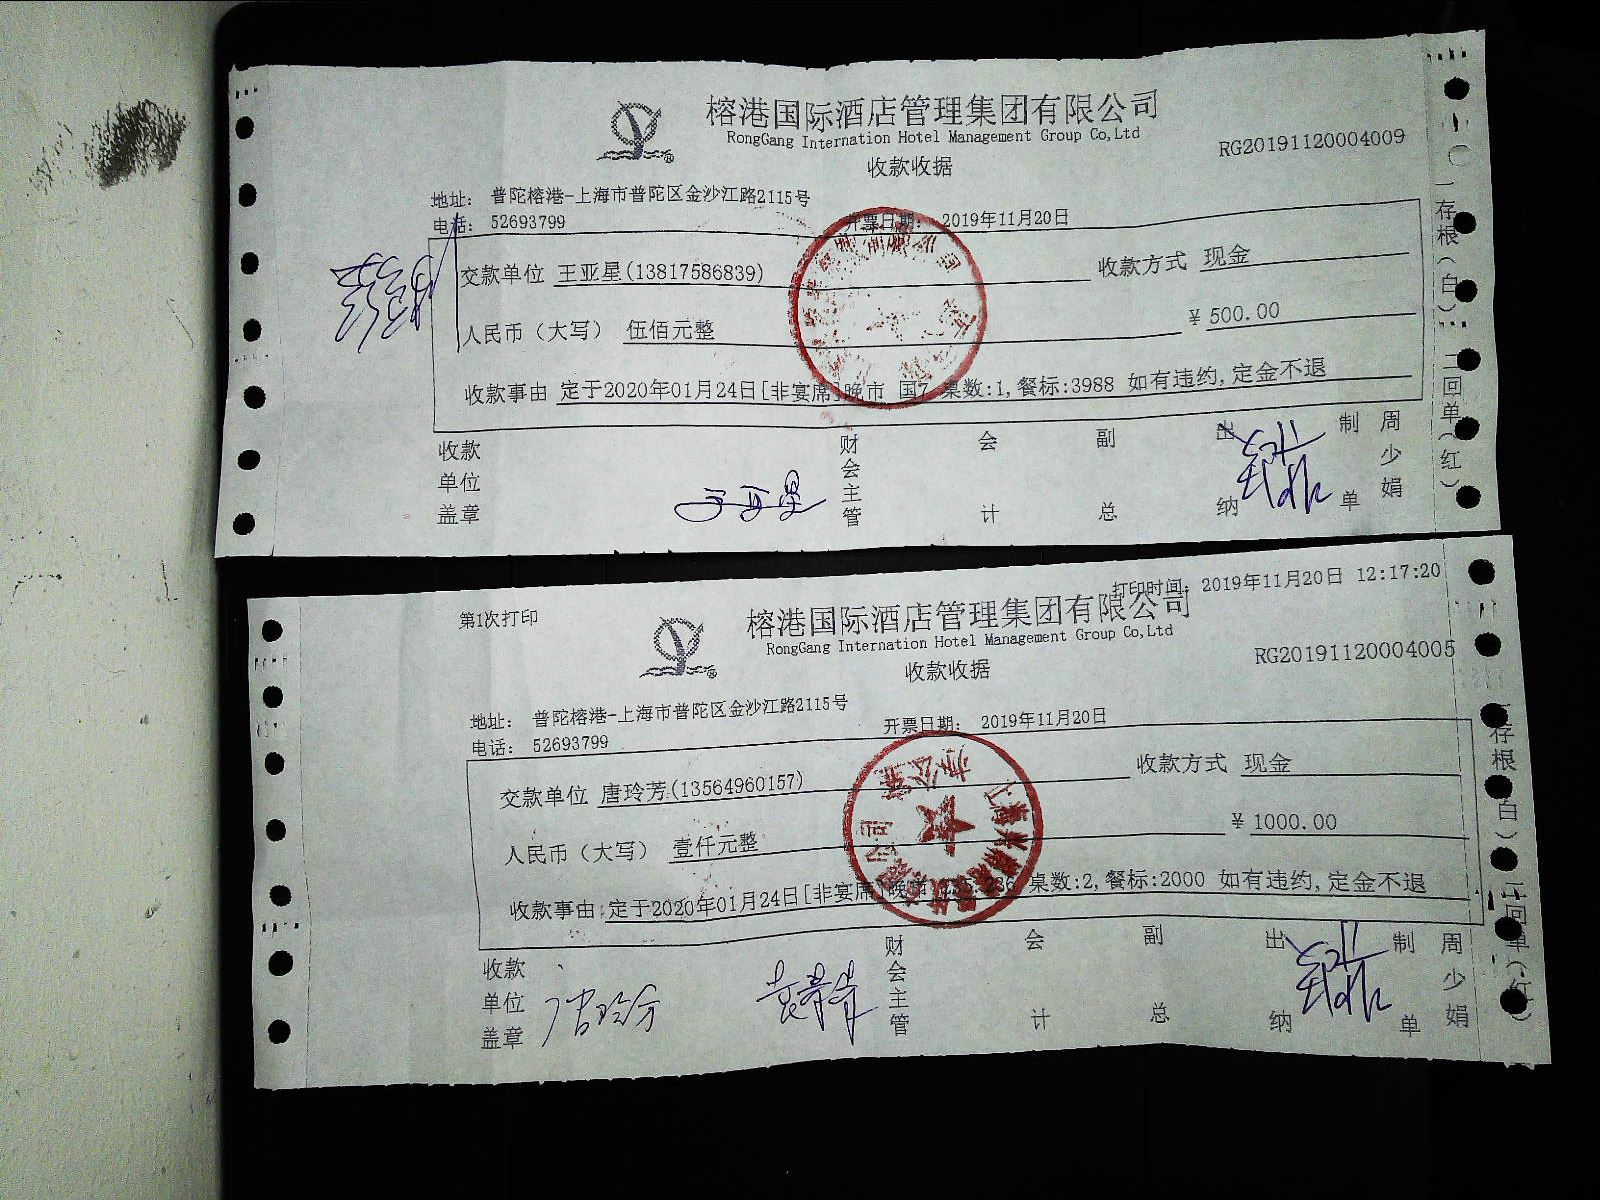 榕港国际酒店管理集团有限公司
RongGang Internation Hotel Management Group Co,Ltd
收款收据
RG20191120004009
地址： 普陀榕港-上海市普陀区金沙江路2115号
电话： 52693799 开票日期： 2019年11月20日
交款单位 王亚星(13817586839) 收款方式 现金
人民币（大写） 伍佰元整 ￥ 500.00
收款事由 定于2020年01月24日[非宴席]晚市 国7 桌数:1,餐标:3988 如有违约,定金不退
收款单位盖章 王亚星 财会主管 会计 副总 出纳 制单 周少娟
一存根(白) 二回单(红)
第1次打印 打印时间： 2019年11月20日 12:17:20
榕港国际酒店管理集团有限公司
RongGang Internation Hotel Management Group Co,Ltd
收款收据
RG20191120004005
地址： 普陀榕港-上海市普陀区金沙江路2115号
电话： 52693799 开票日期： 2019年11月20日
交款单位 唐玲芳(13564960157) 收款方式 现金
人民币（大写） 壹仟元整 ￥ 1000.00
收款事由:定于2020年01月24日[非宴席]晚市 桌数:2,餐标:2000 如有违约,定金不退
收款单位盖章 唐玲芳 财会主管 会计 副总 出纳 制单 周少娟
一存根(白) 二回单(红)